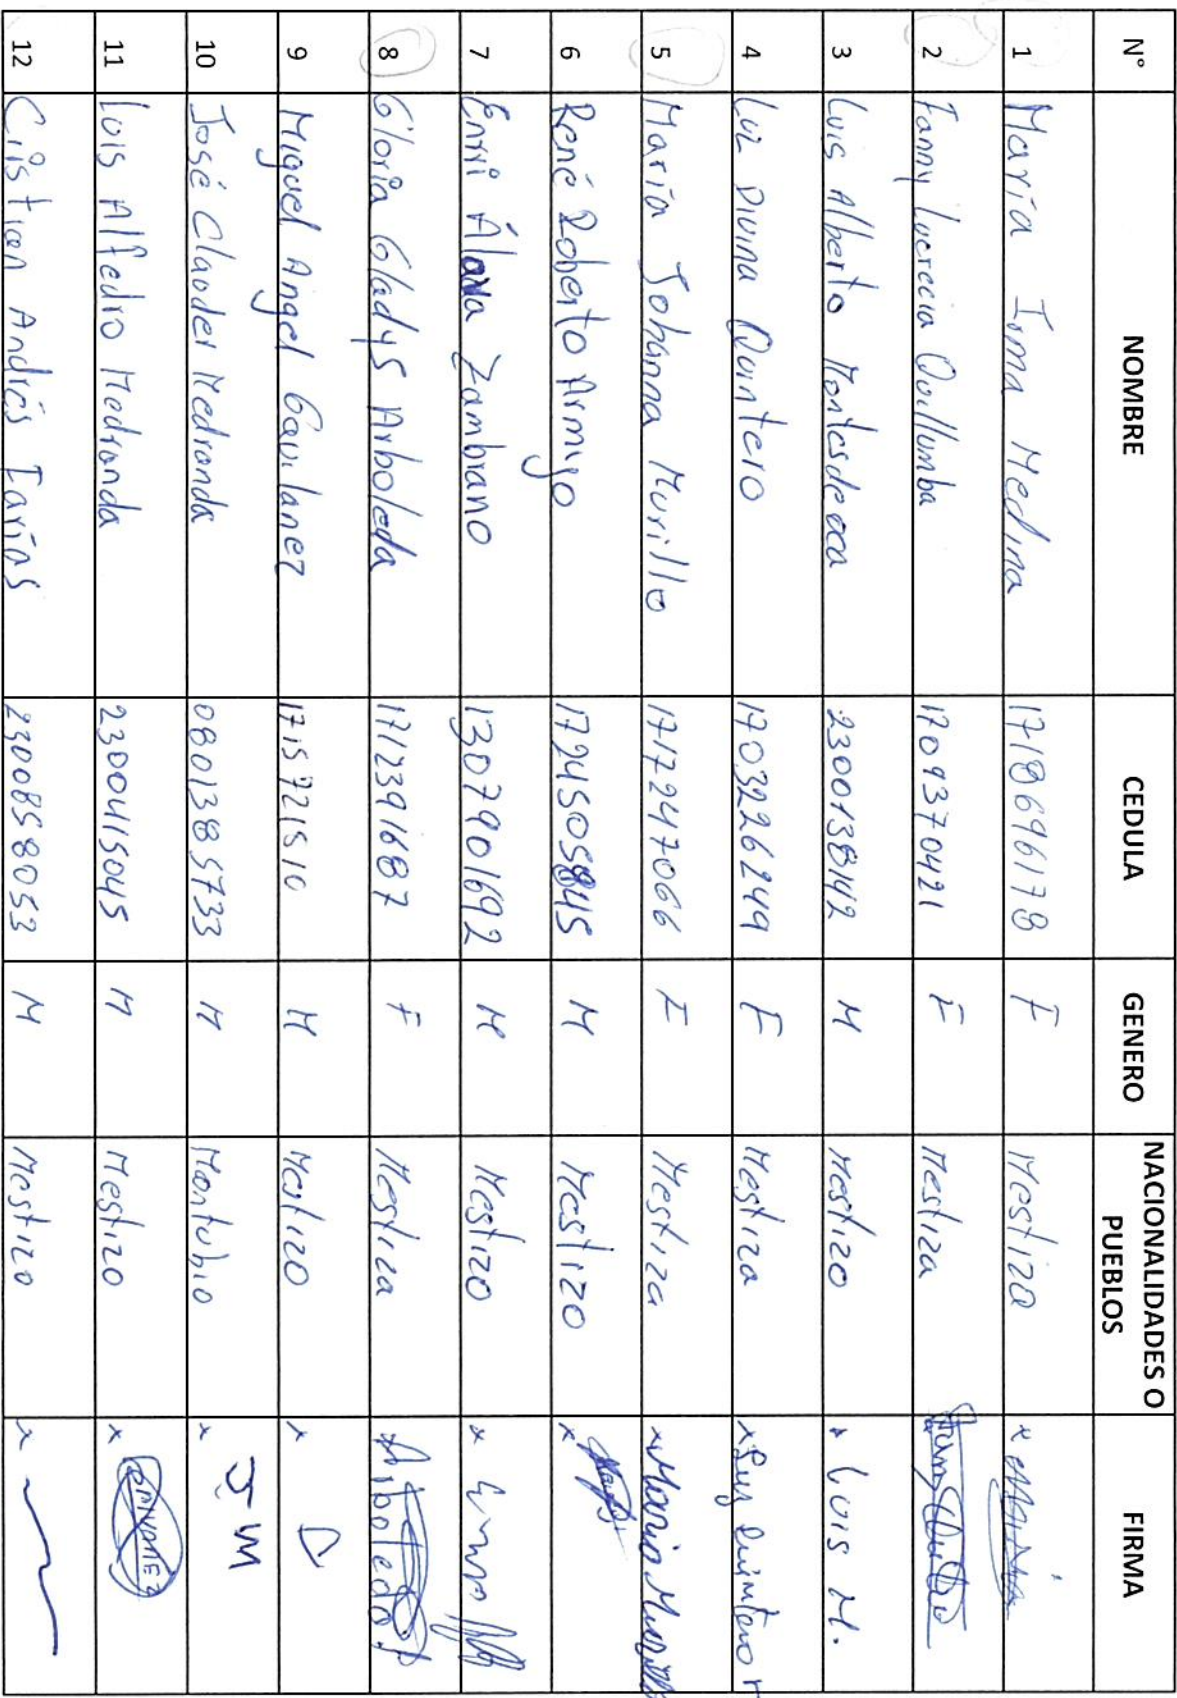 N° NOMBRE CEDULA GENERO NACIONALIDADES O PUEBLOS FIRMA
1 María Irma Medina 1718696178 F Mestiza x
2 Fanny Lucrecia Quillumba 1709370421 F Mestiza
3 Luis Alberto Montesdeoca 2300138142 M Mestizo x Luis M.
4 Luz Divina Quintero 1703226249 F Mestiza x Luz Quintero
5 María Johanna Murillo 1717247066 F Mestiza x Maria
6 René Roberto Armijo 1724505845 M Mestizo x
7 Enrri Álava Zambrano 1307901692 M Mestizo x
8 Gloria Gladys Arboleda 1712391687 F Mestiza Arboleda
9 Miguel Angel Gavilanez 1715721510 M Mestizo x
10 José Clauder Medranda 0801385733 M Montubio x J M
11 Luis Alfedro Medranda 2300415045 M Mestizo x
12 Cristian Andrés Farías 2300858053 M Mestizo x